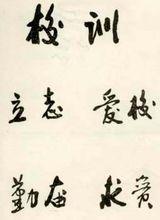 校训
立志 爱校
勤奋 求实